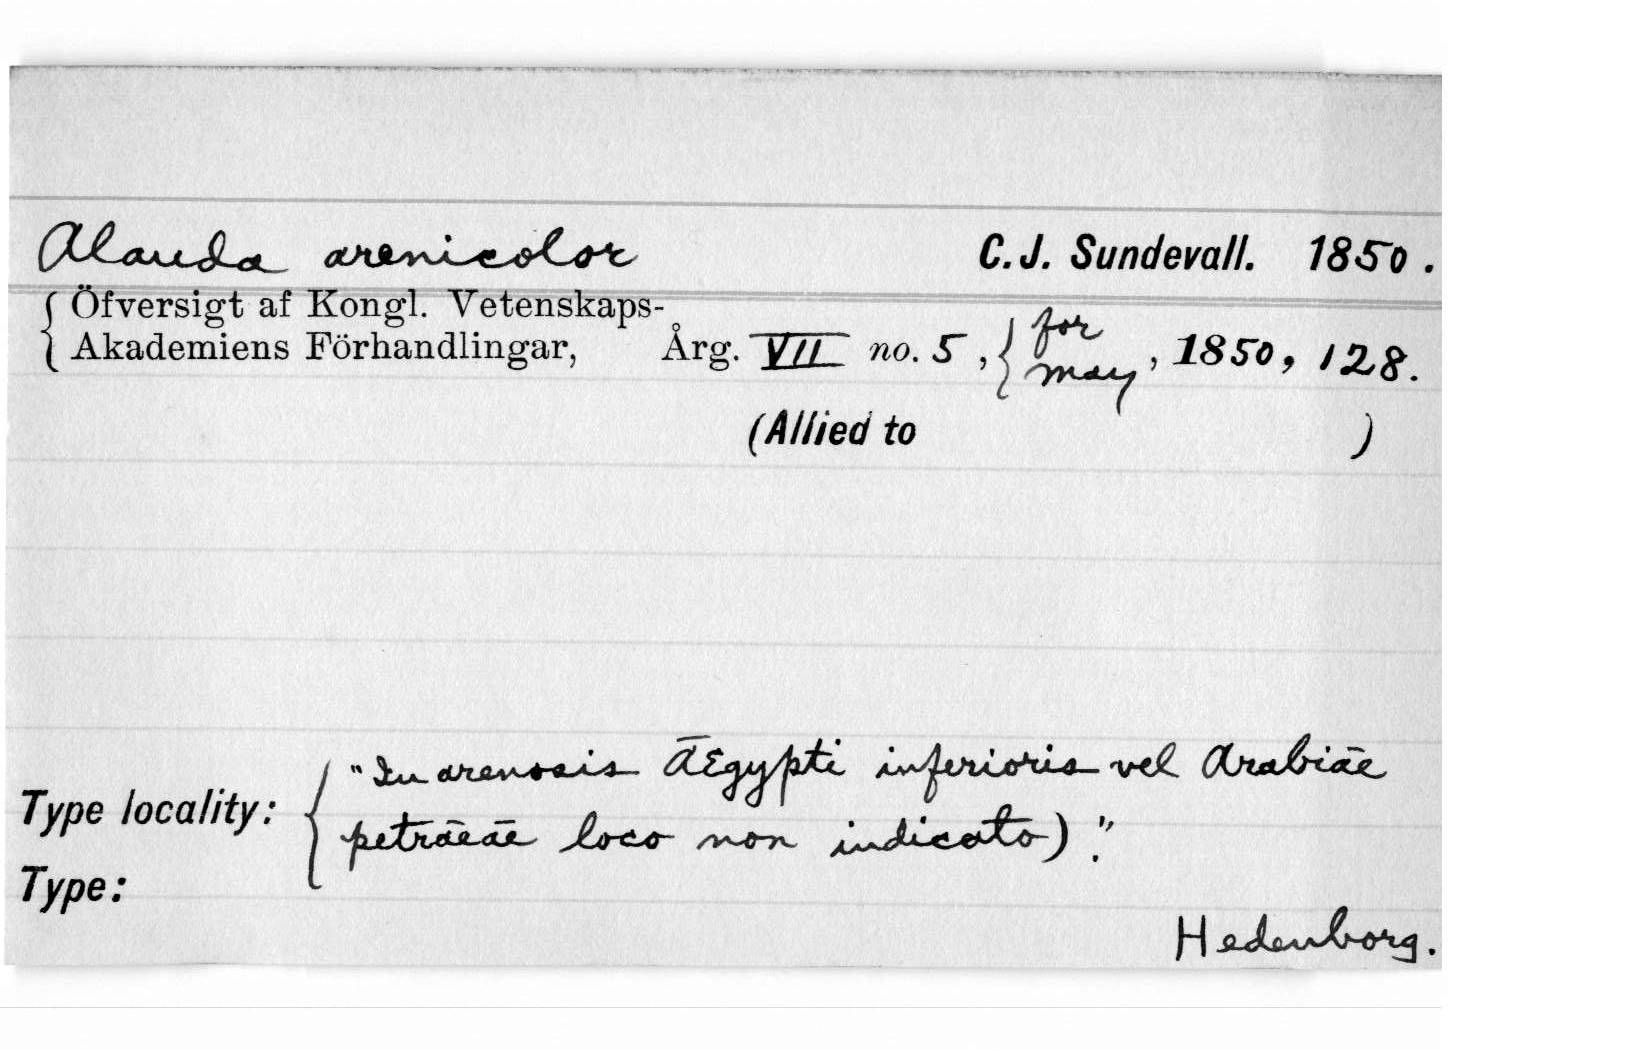 Alauda arenicolor C.J. Sundevall. 1850.
{ Öfversigt af Kongl. Vetenskaps-
Akademiens Förhandlingar, Årg. VII no. 5, { for May, 1850, 128.
(Allied to )
Type locality: { "In arenosis Ægypti inferioris vel Arabiæ
petræeæ loco non indicato)."
Type:
Hedenborg.